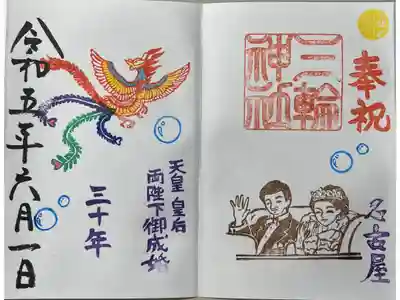 奉祝
三輪
神社
名古屋
天皇 皇后
両陛下御成婚
三十年
令和五年六月一日